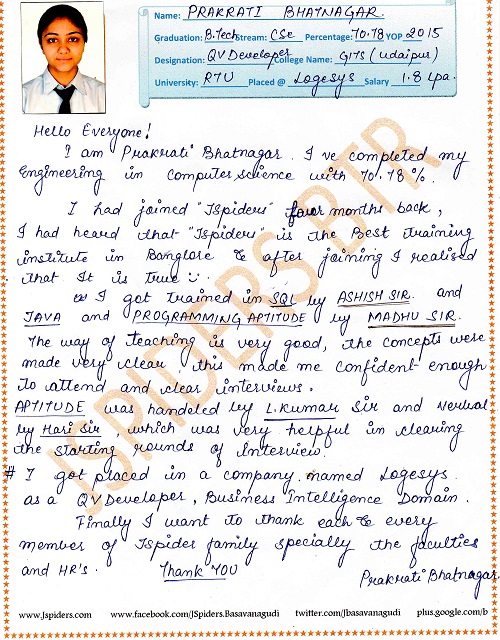 Name: PRAKRATI BHATNAGAR.
Graduation: B.Tech Stream: CSE Percentage: 70.78 YOP 2015
Designation: QV Developer College Name: GITS (Udaipur)
University: RTU Placed @ Logesys Salary 1.8 Lpa.
Hello Everyone!
I am Prakrati Bhatnagar. I've completed my
Engineering in computer science with 70.78%.
I had joined "Jspiders" four months back,
I had heard that "Jspiders" is the Best training
institute in Banglore & after joining I realised
that It is true
I got trained in SQL by ASHISH SIR. and
JAVA and PROGRAMMING APTITUDE by MADHU SIR.
The way of teaching is very good, the concepts were
made very clear. this made me confident enough
to attend and clear interviews.
APTITUDE was handeled by L.Kumar Sir and Verbal
by Hari Sir, which was very helpful in clearing
the starting rounds of Interview.
# I got placed in a company named Logesys
as a QV Developer, Business Intelligence Domain.
Finally I want to thank each & every
member of Jspider family specially the faculties
and HR's. Thank YOU
Prakrati Bhatnagar.
JSPIDERS BTR
www.Jspiders.com www.facebook.com/JSpiders.Basavanagudi twitter.com/Jbasavanagudi plus.google.com/b